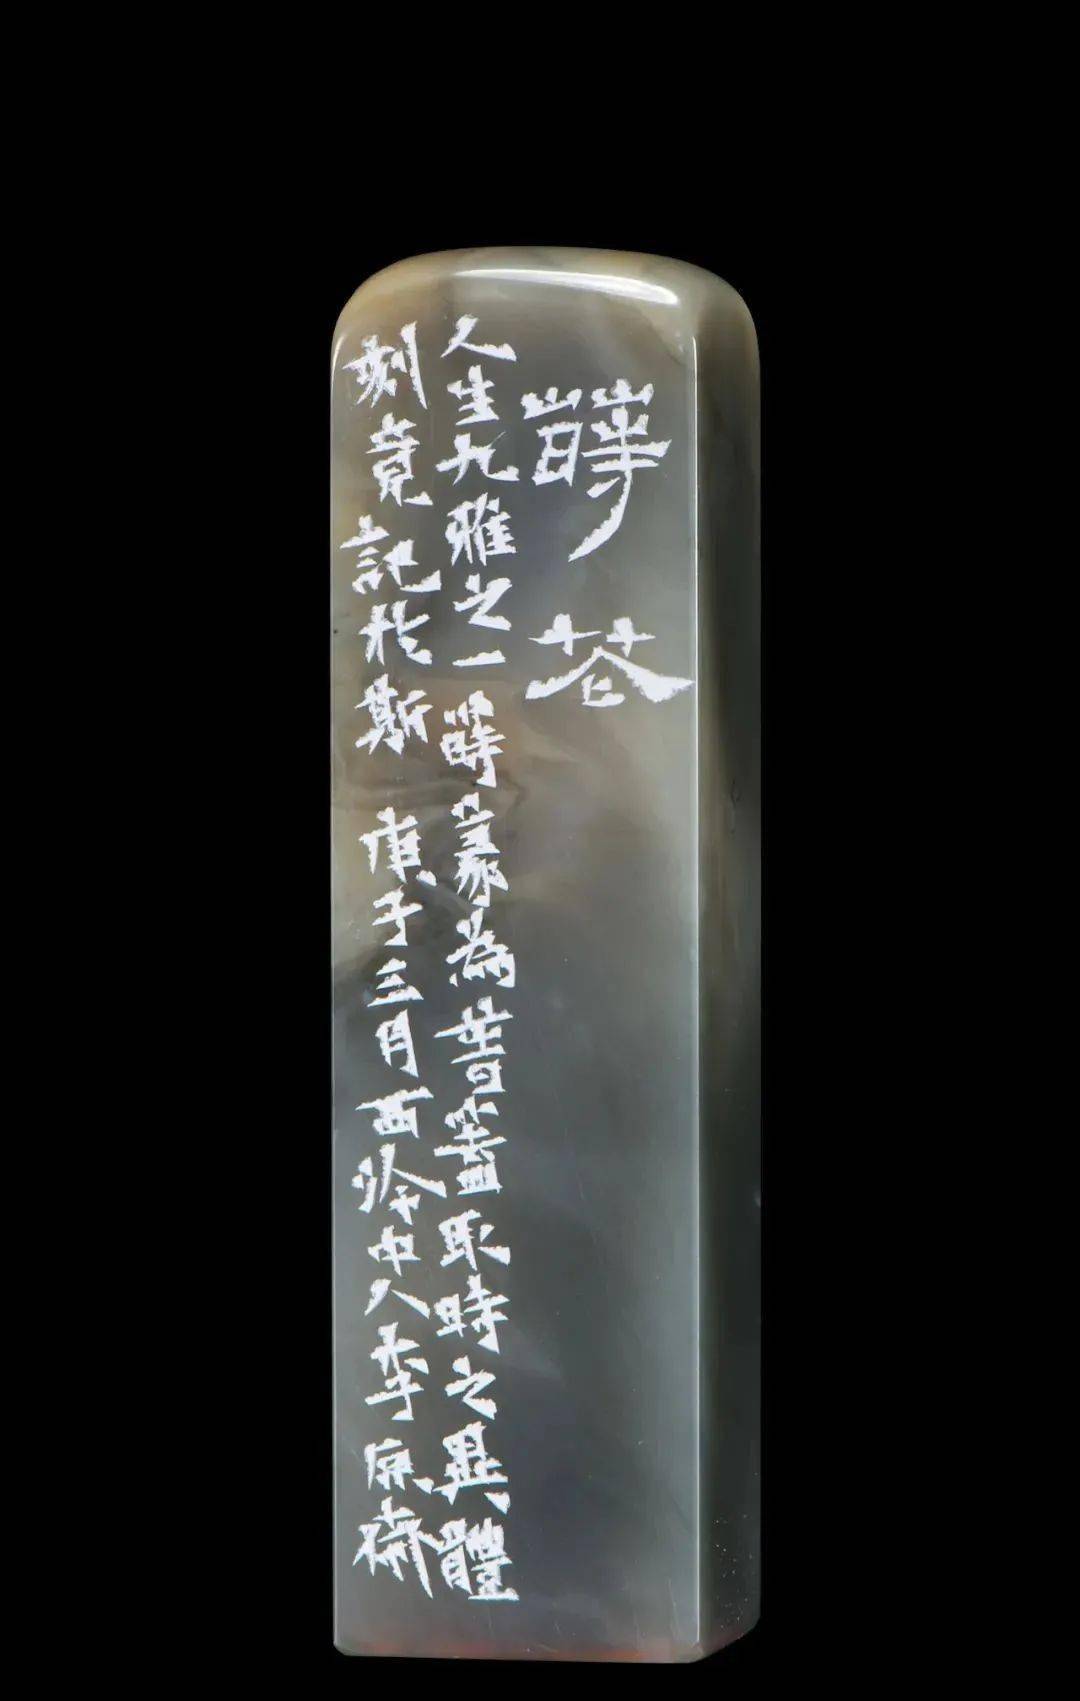 蒔花
人生九雅之一蒔篆為蓋取時之異體
刻竟記於斯 庚子三月西泠中人李齋